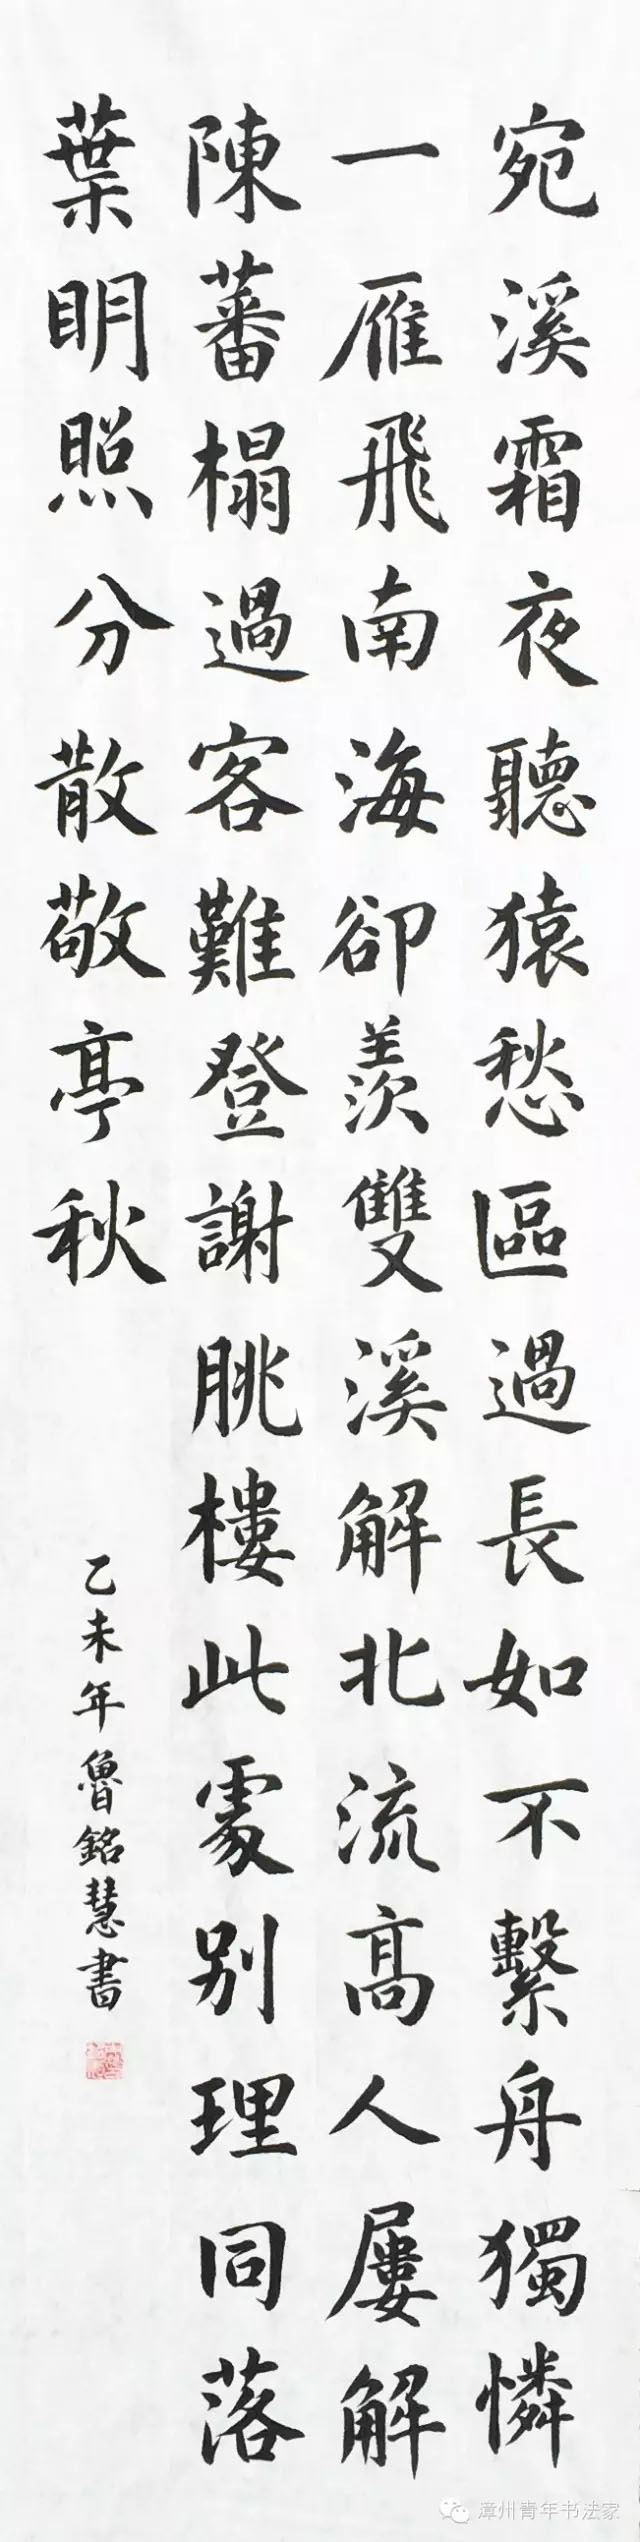 宛溪霜夜聽猿愁區過長如不繫舟獨憐
一雁飛南海卻羨雙溪解北流高人屢解
陳蕃榻過客難登謝朓樓此處別理同落
葉眀照分散敬亭秋
乙未年魯銘慧書
漳州青年书法家